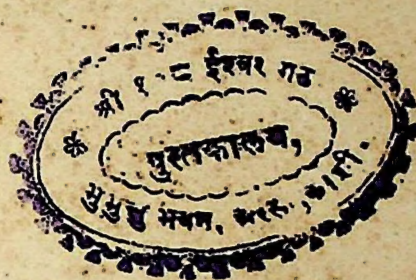 श्री १०८ ईश्वर मठ
पुस्तकालय,
मुमुक्षु भवन, काशी.